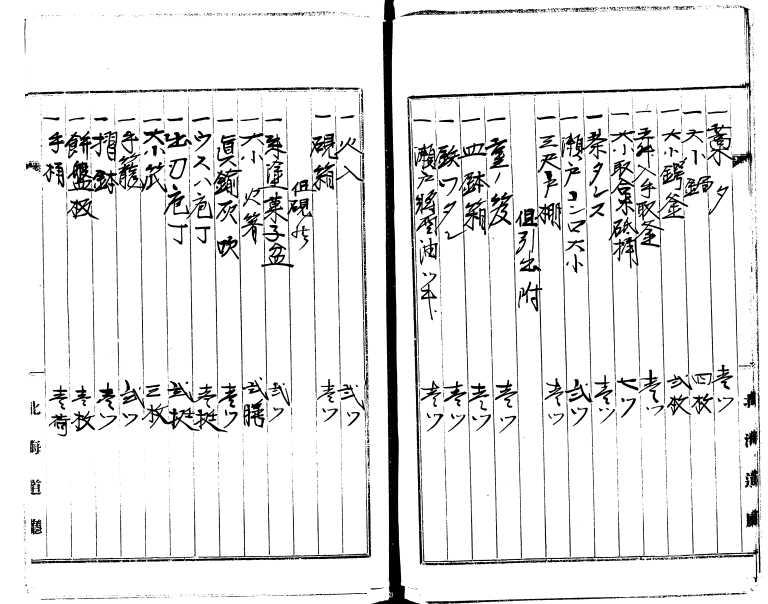 一 壱ツ
一 大小鍋 四枚
一 大小鍔釜 弐枚
一 五升入手取釜 壱ツ
一 大小取合 桶 七ツ
一 茶タンス 壱ツ
一 瀬戸コンロ大小 弐ツ
一 三尺戸棚 壱ツ
但引出附
一 重ノ 壱ツ
一 皿鉢箱 壱ツ
一 鉄ワタシ 壱ツ
一 瀬戸 油 壱ツ
一 火入 弐ツ
一 硯箱 壱ツ
但硯共
一 朱塗菓子盆 弐ツ
一 大小火箸 弐膳
一 真鍮灰吹 壱ツ
一 ウスバ庖丁 壱挺
一 出刃庖丁 弐挺
一 大小笊 三枚
一 手籠 弐ツ
一 摺鉢 壱ツ
一 餅盤板 壱枚
一 手桶 壱荷
北海道廳